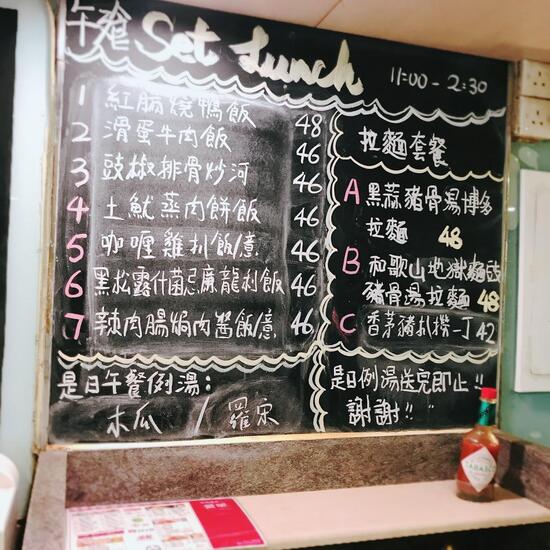 午餐 Set Lunch 11:00 - 2:30
1 紅腸燒鴨飯 48
2 滑蛋牛肉飯 46
3 豉椒排骨炒河 46
4 土魷蒸肉餅飯 46
5 咖喱雞扒飯/意 46
6 黑松露什菌忌廉龍利飯 46
7 辣肉腸焗肉醬飯/意 46
拉麵套餐
A 黑蒜豬骨湯博多
拉麵 48
B 和歌山地獄麵豉
豬骨湯拉麵 48
C 香茅豬扒撈一丁 42
是日午餐例湯：
木瓜 / 羅宋
是日例湯送完即止!!
謝謝!!
TABASCO